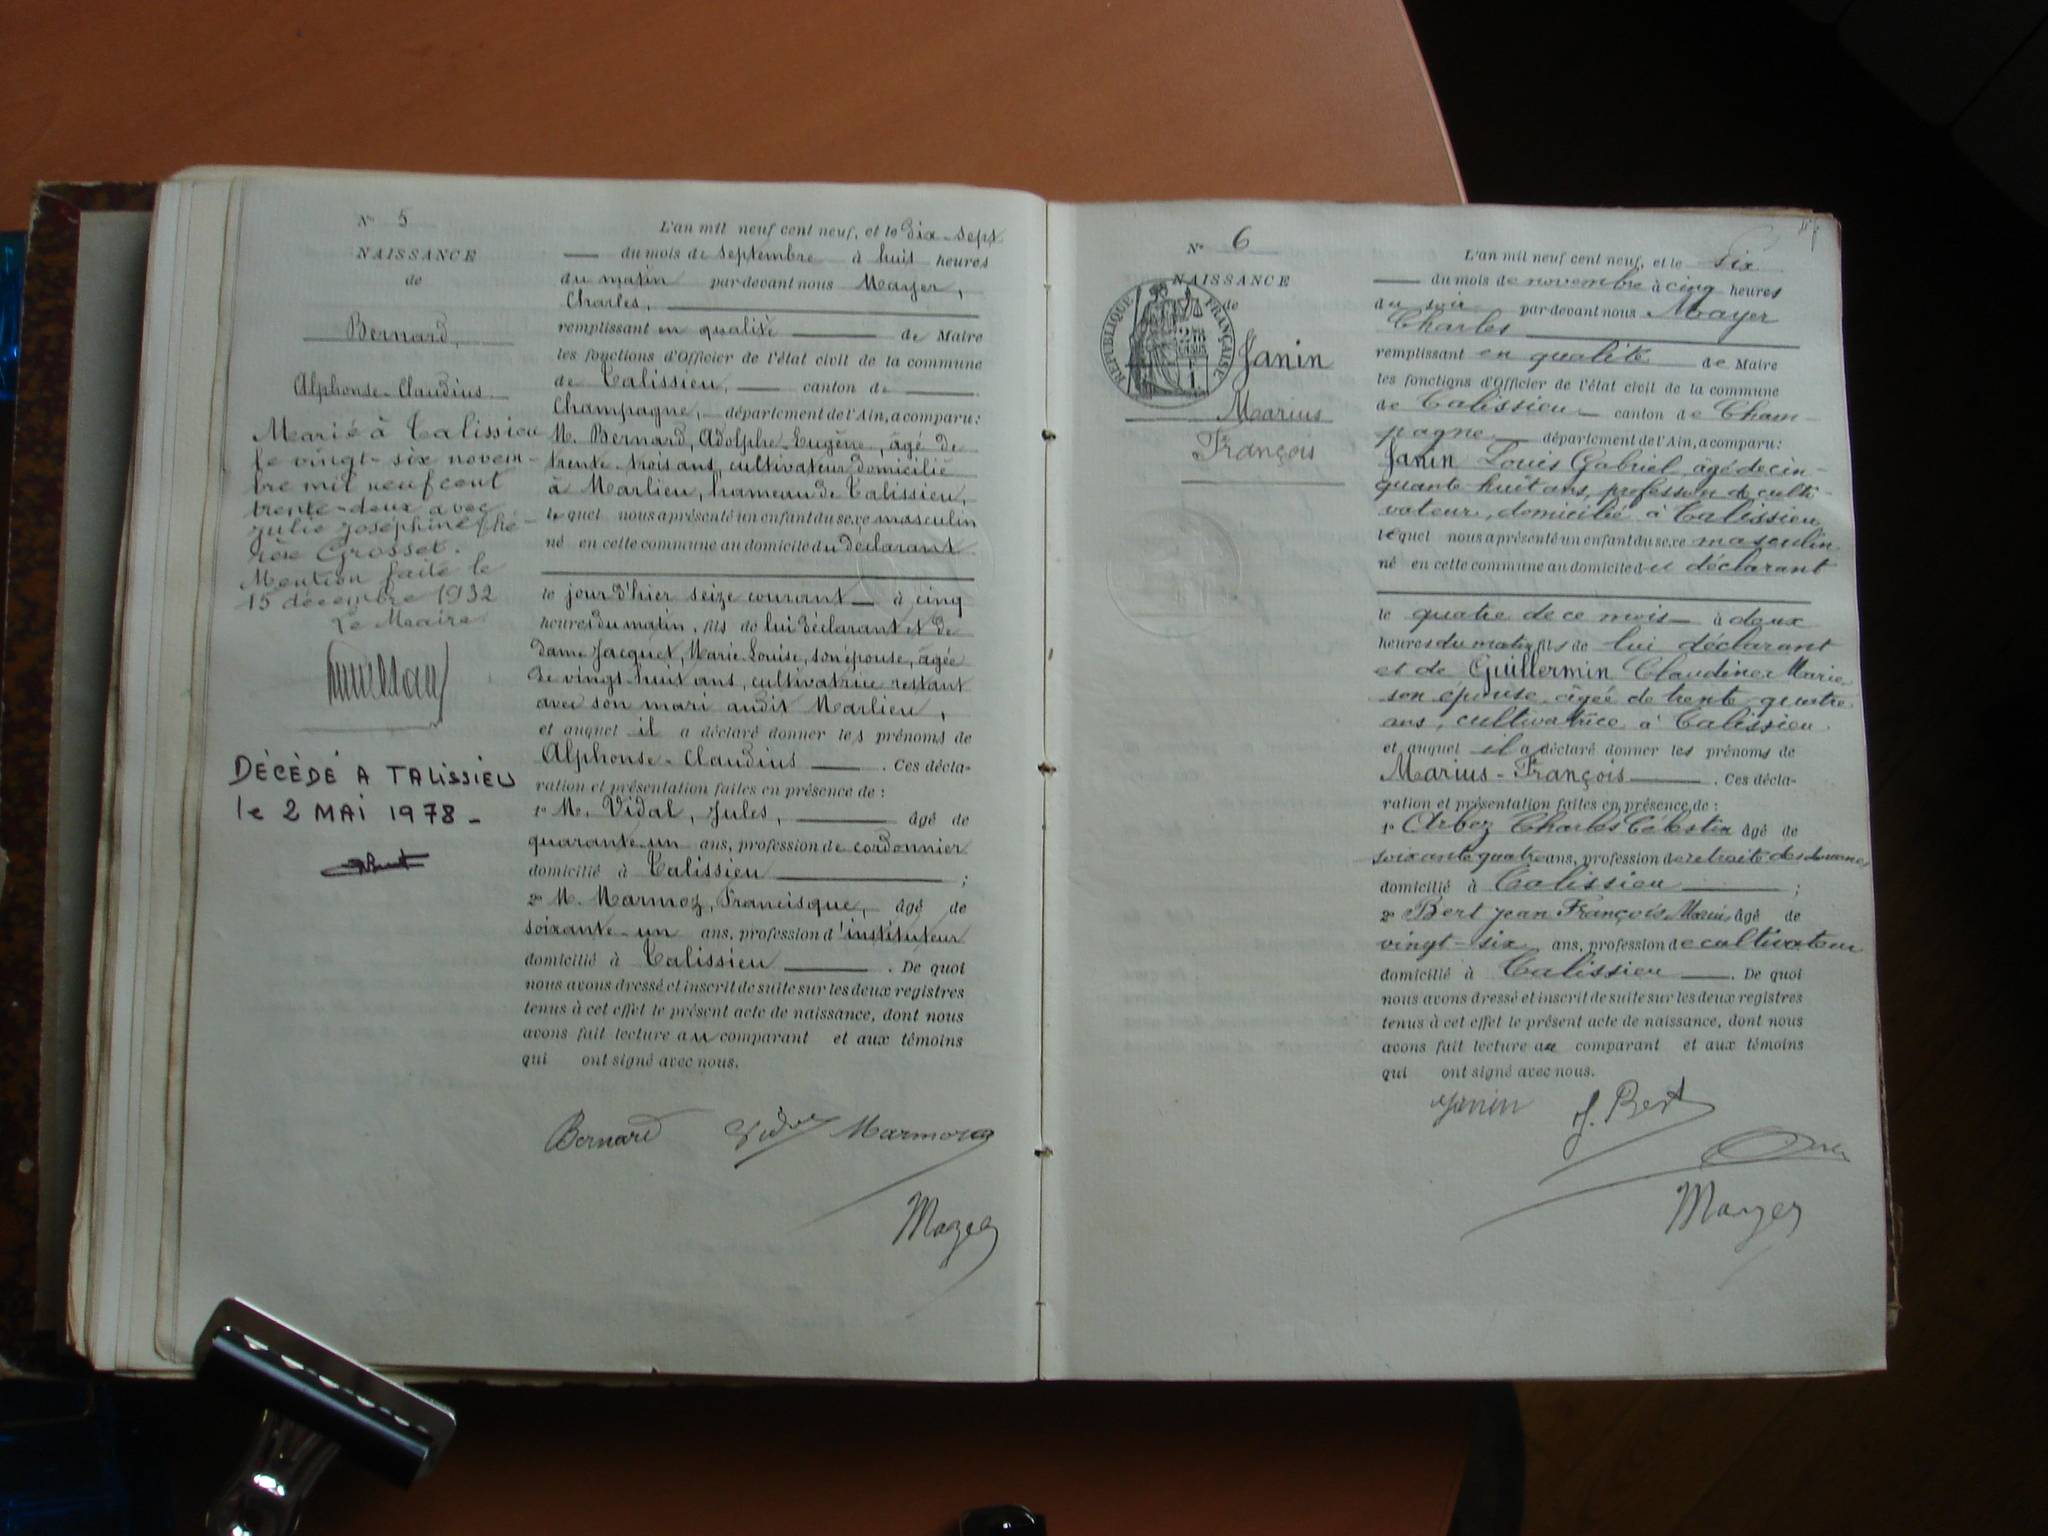 N° 5
NAISSANCE
de
Bernard,
Alphonse-Claudius
Marié à Talissieu
le vingt-six novem-
bre mil neuf cent
trente-deux avec
Julie Joséphine Thé-
rèse Grosset.
Mention faite le
15 décembre 1932
Le Maire
DÉCÉDÉ A TALISSIEU
le 2 MAI 1978 -
L'an mil neuf cent neuf, et le dix-sept
du mois de septembre à huit heures
du matin par-devant nous Mayer,
Charles,
remplissant en qualité de Maire
les fonctions d'Officier de l'état civil de la commune
de Talissieu, canton de
Champagne, département de l'Ain, a comparu :
M. Bernard, Adolphe-Eugène, âgé de
trente-trois ans, cultivateur domicilié
à Marlieu, hameau de Talissieu,
lequel nous a présenté un enfant du sexe masculin
né en cette commune au domicile du déclarant
le jour d'hier seize courant à cinq
heures du matin, fils de lui déclarant et de
dame Jacquet, Marie-Louise, son épouse, âgée
de vingt-huit ans, cultivatrice restant
avec son mari audit Marlieu,
et auquel il a déclaré donner les prénoms de
Alphonse-Claudius . Ces décla-
ration et présentation faites en présence de :
1° M. Vidal, Jules, âgé de
quarante-un ans, profession de cordonnier
domicilié à Talissieu ;
2° M. Marmoz, Francisque, âgé de
soixante-un ans, profession d'instituteur
domicilié à Talissieu . De quoi
nous avons dressé et inscrit de suite sur les deux registres
tenus à cet effet le présent acte de naissance, dont nous
avons fait lecture au comparant et aux témoins
qui ont signé avec nous.
Bernard Vidal Marmoz
Mayer
N° 6
NAISSANCE
de
REPUBLIQUE FRANÇAISE
Janin
Marius
François
L'an mil neuf cent neuf, et le six
du mois de novembre à cinq heures
du soir par-devant nous Mayer
Charles
remplissant en qualité de Maire
les fonctions d'Officier de l'état civil de la commune
de Talissieu canton de Cham-
pagne département de l'Ain, a comparu :
Janin Louis Gabriel, âgé de cin-
quante huit ans, profession de culti-
vateur, domicilié à Talissieu
lequel nous a présenté un enfant du sexe masculin
né en cette commune au domicile du déclarant
le quatre de ce mois à deux
heures du matin fils de lui déclarant
et de Guillermin Claudine Marie
son épouse, âgée de trente-quatre
ans, cultivatrice à Talissieu
et auquel il a déclaré donner les prénoms de
Marius-François . Ces décla-
ration et présentation faites en présence de :
1° Arbez Charles Célestin âgé de
soixante quatre ans, profession de retraité des douanes
domicilié à Talissieu ;
2° Bert Jean François Marie âgé de
vingt-six ans, profession de cultivateur
domicilié à Talissieu . De quoi
nous avons dressé et inscrit de suite sur les deux registres
tenus à cet effet le présent acte de naissance, dont nous
avons fait lecture au comparant et aux témoins
qui ont signé avec nous.
Janin J. Bert
Mayer